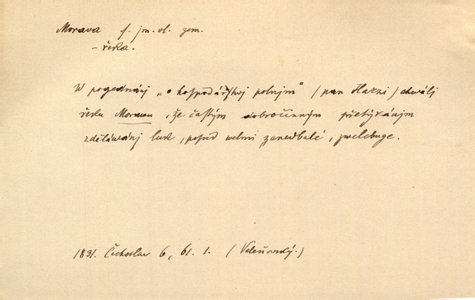 Morava f. jm. vl. zem.
– řeka.
W pogednánj „o hospodářskèm polnjm“ (pan Hazni) chwálj
řeku Morawu, že častým dobročinným přetýkánjm
zděláwánj luk, posud welmi zanedbalé, zwelebuge.
1831. Čechoslav 6, 61. 1. (Veleňovský.)